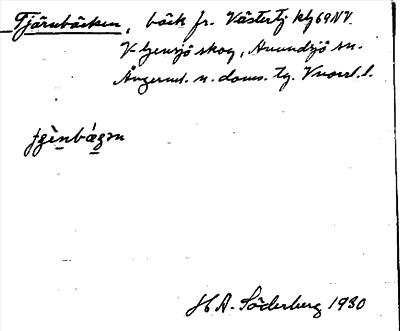 Tjärnbäcken, bäck fr. Västertj kbl 69NV.
V Gensjö skog, Anundsjö sn.
Ångerml. n. doms. tg. Vnorrl. l.
H A. Söderberg 1930